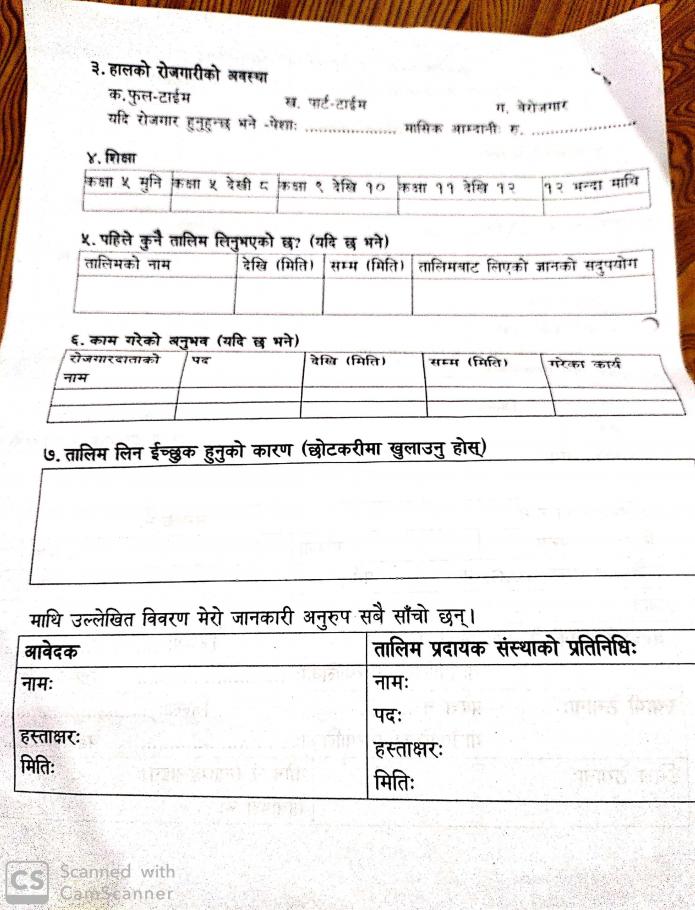 ३. हालको रोजगारीको अवस्था
क. फुल-टाईम ख. पार्ट-टाईम ग. वेरोजगार
यदि रोजगार हुनुहुन्छ भने -पेशाः .................... मासिक आम्दानीः रु. .......................
४. शिक्षा
कक्षा ५ मुनि कक्षा ५ देखी ८ कक्षा ९ देखि १० कक्षा ११ देखि १२ १२ भन्दा माथि
५. पहिले कुनै तालिम लिनुभएको छ? (यदि छ भने)
तालिमको नाम देखि (मिति) सम्म (मिति) तालिमबाट लिएको ज्ञानको सदुपयोग
६. काम गरेको अनुभव (यदि छ भने)
रोजगारदाताको पद देखि (मिति) सम्म (मिति) गरेका कार्य
नाम
७. तालिम लिन ईच्छुक हुनुको कारण (छोटकरीमा खुलाउनु होस्)
माथि उल्लेखित विवरण मेरो जानकारी अनुरुप सबै साँचो छन्।
आवेदक तालिम प्रदायक संस्थाको प्रतिनिधिः
नामः नामः
पदः
हस्ताक्षरः हस्ताक्षरः
मितिः मितिः
CS Scanned with
CamScanner